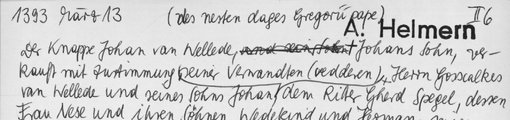 1393 März 13 (des nesten dages Gregorii pape) II 6
A. Helmern
Der Knappe Johan van Wellede, und sein Sohn Johans Sohn, ver-
kauft mit Zustimmung seiner Verwandten (vedderen), Herrn Gosscalkes
van Wellede und seines Sohns Johan, dem Ritter Gherd Spegel, dessen
Frau Nese und ihren Söhnen Wedekind und Herman